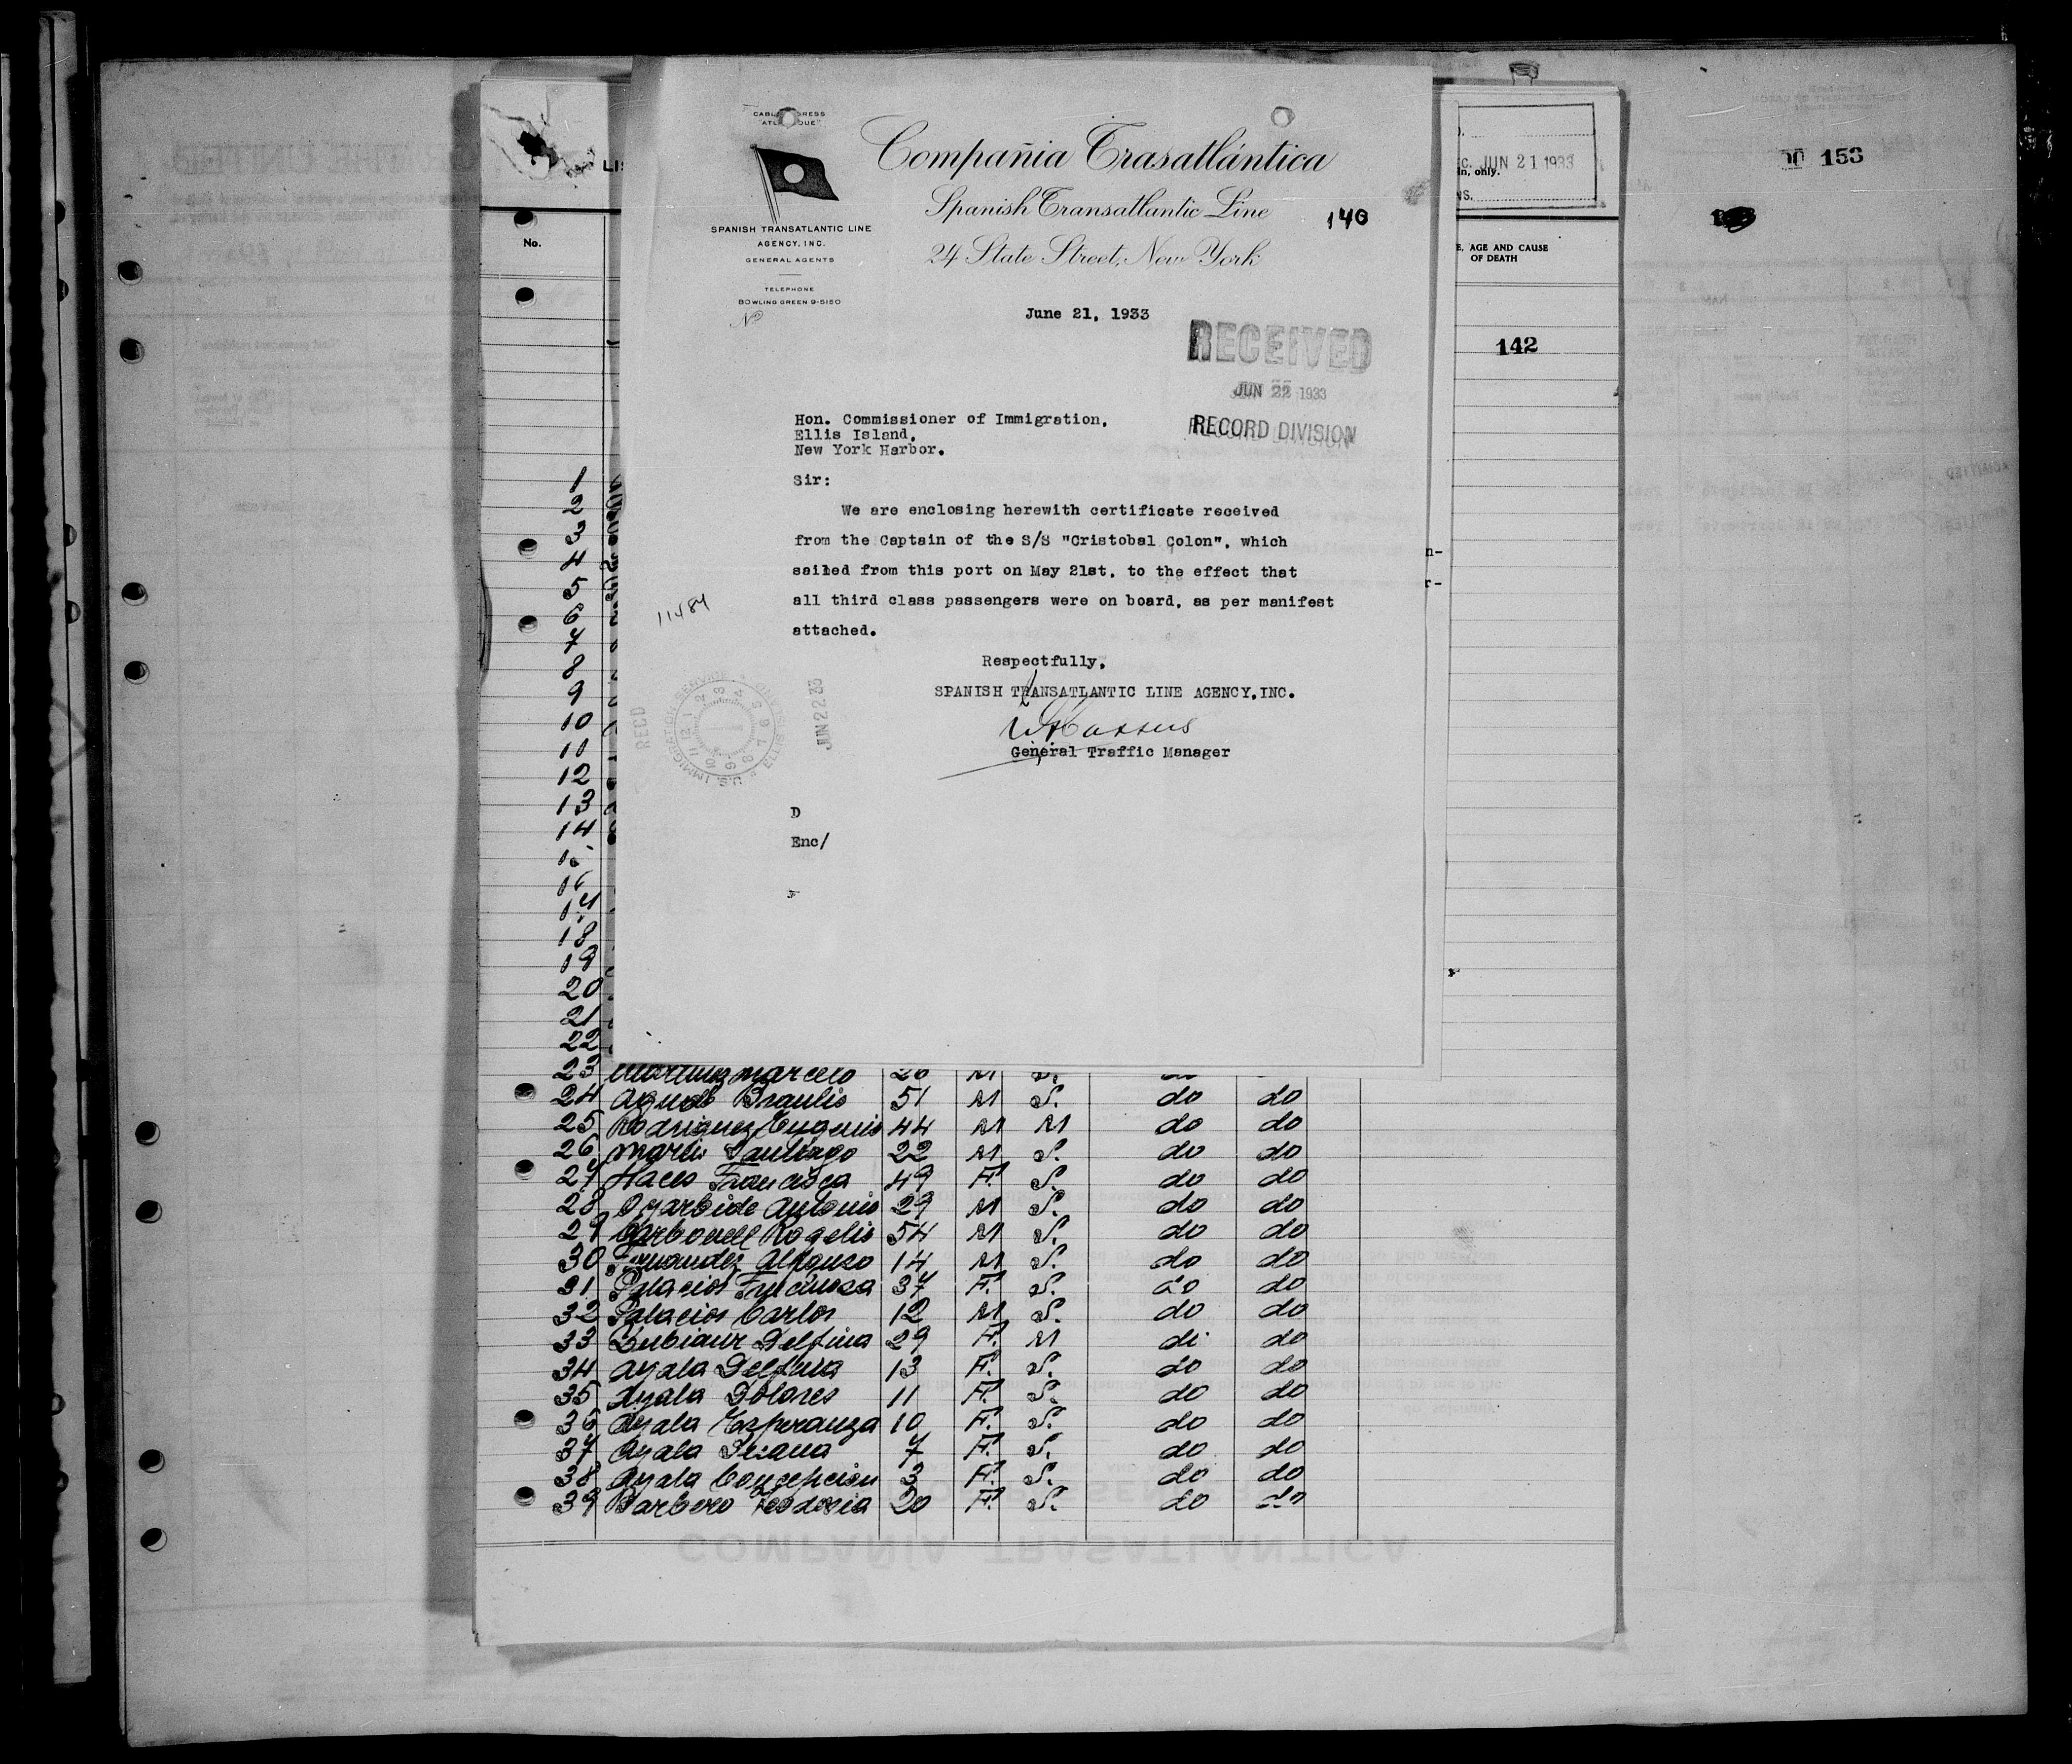 CABLE ADDRESS
Compañia Trasatlántica
Spanish Transatlantic Line
24 State Street, New York
140
SPANISH TRANSATLANTIC LINE
AGENCY, INC.
GENERAL AGENTS
TELEPHONE
BOWLING GREEN 9-5150
No
June 21, 1933
RECEIVED
JUN 22 1933
RECORD DIVISION
Hon. Commissioner of Immigration,
Ellis Island,
New York Harbor.
Sir:
We are enclosing herewith certificate received
from the Captain of the S/S "Cristobal Colon", which
sailed from this port on May 21st, to the effect that
all third class passengers were on board, as per manifest
attached.
11484
Respectfully,
SPANISH TRANSATLANTIC LINE AGENCY, INC.
General Traffic Manager
REC'D
U.S. IMMIGRATION SERVICE
JUN 22 33
D
Enc/
LIS
No.
JUN 21 1933
in, only.
NS.
E, AGE AND CAUSE
OF DEATH
142
153
n-
r-
1
2
3
4
5
6
7
8
9
10
11
12
13
14
15
16
17
18
19
20
21
22
23 Martinez Marcelo 26 M S.
24 Agudo Braulio 51 M S. do do
25 Rodriguez Eugenio 44 M M do do
26 Martin Santiago 22 M S. do do
27 Haces Francisca 49 F. S. do do
28 Oyarbide Antonio 29 M S. do do
29 Carbonell Rogelio 54 M S. do do
30 Fernandez Alfonso 14 M S. do do
31 Palacios Fructuosa 37 F. S. do do
32 Palacios Carlos 12 M S. do do
33 Zubiaur Delfina 29 F. M do do
34 Ayala Delfina 13 F. S. do do
35 Ayala Dolores 11 F. S. do do
36 Ayala Esperanza 10 F. S. do do
37 Ayala 7 F. S. do do
38 Ayala Concepcion 3 F. S. do do
39 Barbero Teodosia 20 F. S. do do
COMPAÑIA TRASATLANTICA